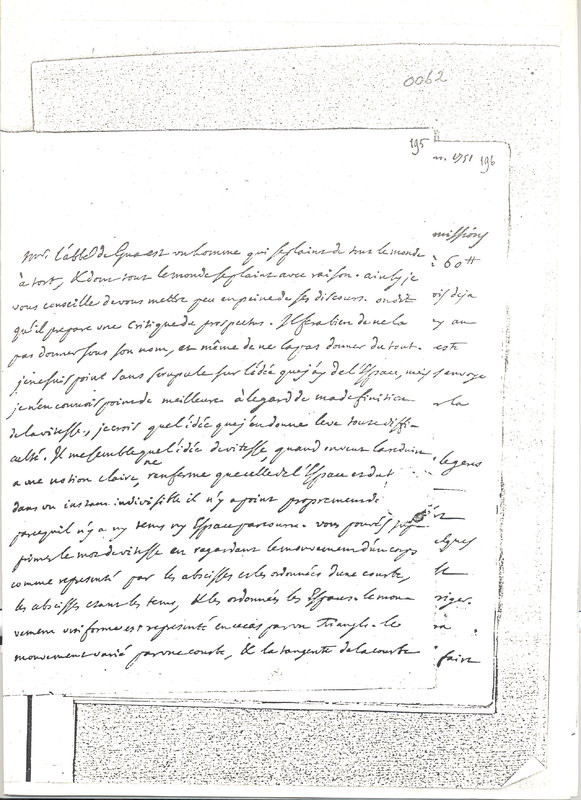 0062
195
n. 1751 196
Mr. l'abbé de Gua est un homme qui se plaint de tout le monde
à tort, & dont tout le monde se plaint avec raison. ainsy je
vous conseille de vous mettre peu en peine de ses discours. on dit
qu'il prepare une Critique du prospectus. Il fera bien de ne la
pas donner sous son nom, et même de ne la pas donner du tout.
je ne suis point sans scrupule sur l'idée que j'ay de l'Espace, mais
je n'en connois point de meilleure à l'egard de ma definition
de la vitesse, je crois que l'idée que j'en donne leve toute diffi-
culté. Il me semble que l'idée de vitesse, quand on veut la reduire
a une notion claire, ne renferme que celle de l'Espace et du t
dans un instant indivisible il n'y a point proprement de
parcequ'il n'y a ny tems ny Espace parcouru. vous pouvés
primer le mot de vitesse en regardant le mouvement d'un corps
comme representé par les abscisses et les ordonnées d'une courbe,
les abscisses etant les tems, & les ordonnés les Espaces. le mou-
vement uniforme est representé en ce cas par un Triangle. le
mouvement varié par une courbe, & la tangente de la courbe
missions
60 tt
ois deja
y au
este
envoye
la
le gens
elques
le
riger.
faire